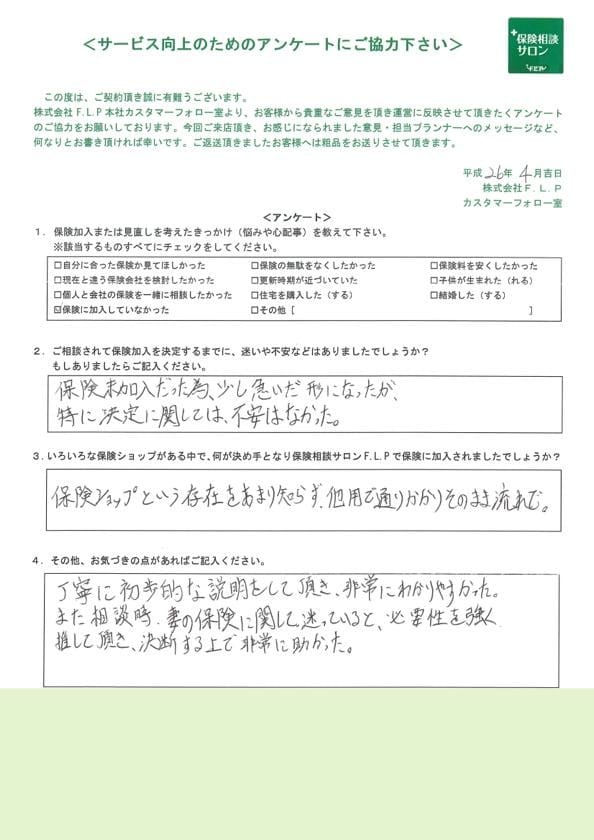 ＜サービス向上のためのアンケートにご協力下さい＞
+保険相談
サロン
F.L.P
この度は、ご契約頂き誠に有難うございます。
株式会社F.L.P本社カスタマーフォロー室より、お客様から貴重なご意見を頂き運営に反映させて頂きたくアンケート
のご協力をお願いしております。今回ご来店頂き、お感じになられました意見・担当プランナーへのメッセージなど、
何なりとお書き頂ければ幸いです。ご返送頂きましたお客様へは粗品をお送りさせて頂きます。
平成 26年 4月吉日
株式会社F.L.P
カスタマーフォロー室
＜アンケート＞
1．保険加入または見直しを考えたきっかけ（悩みや心配事）を教えて下さい。
※該当するものすべてにチェックをしてください。
□自分に合った保険か見てほしかった □保険の無駄をなくしたかった □保険料を安くしたかった
□現在と違う保険会社を検討したかった □更新時期が近づいていた □子供が生まれた（れる）
□個人と会社の保険を一緒に相談したかった □住宅を購入した（する） □結婚した（する）
☑保険に加入していなかった □その他［ ］
2．ご相談されて保険加入を決定するまでに、迷いや不安などはありましたでしょうか？
もしありましたらご記入ください。
保険未加入だった為、少し急いだ形になったが、
特に決定に関しては、不安はなかった。
3．いろいろな保険ショップがある中で、何が決め手となり保険相談サロンF.L.Pで保険に加入されましたでしょうか？
保険ショップという存在をあまり知らず、他用で通りかかりそのまま流れで。
4．その他、お気づきの点があればご記入ください。
丁寧に初歩的な説明をして頂き、非常にわかりやすかった。
また相談時、妻の保険に関して迷っていると、必要性を強く
推して頂き、決断する上で非常に助かった。